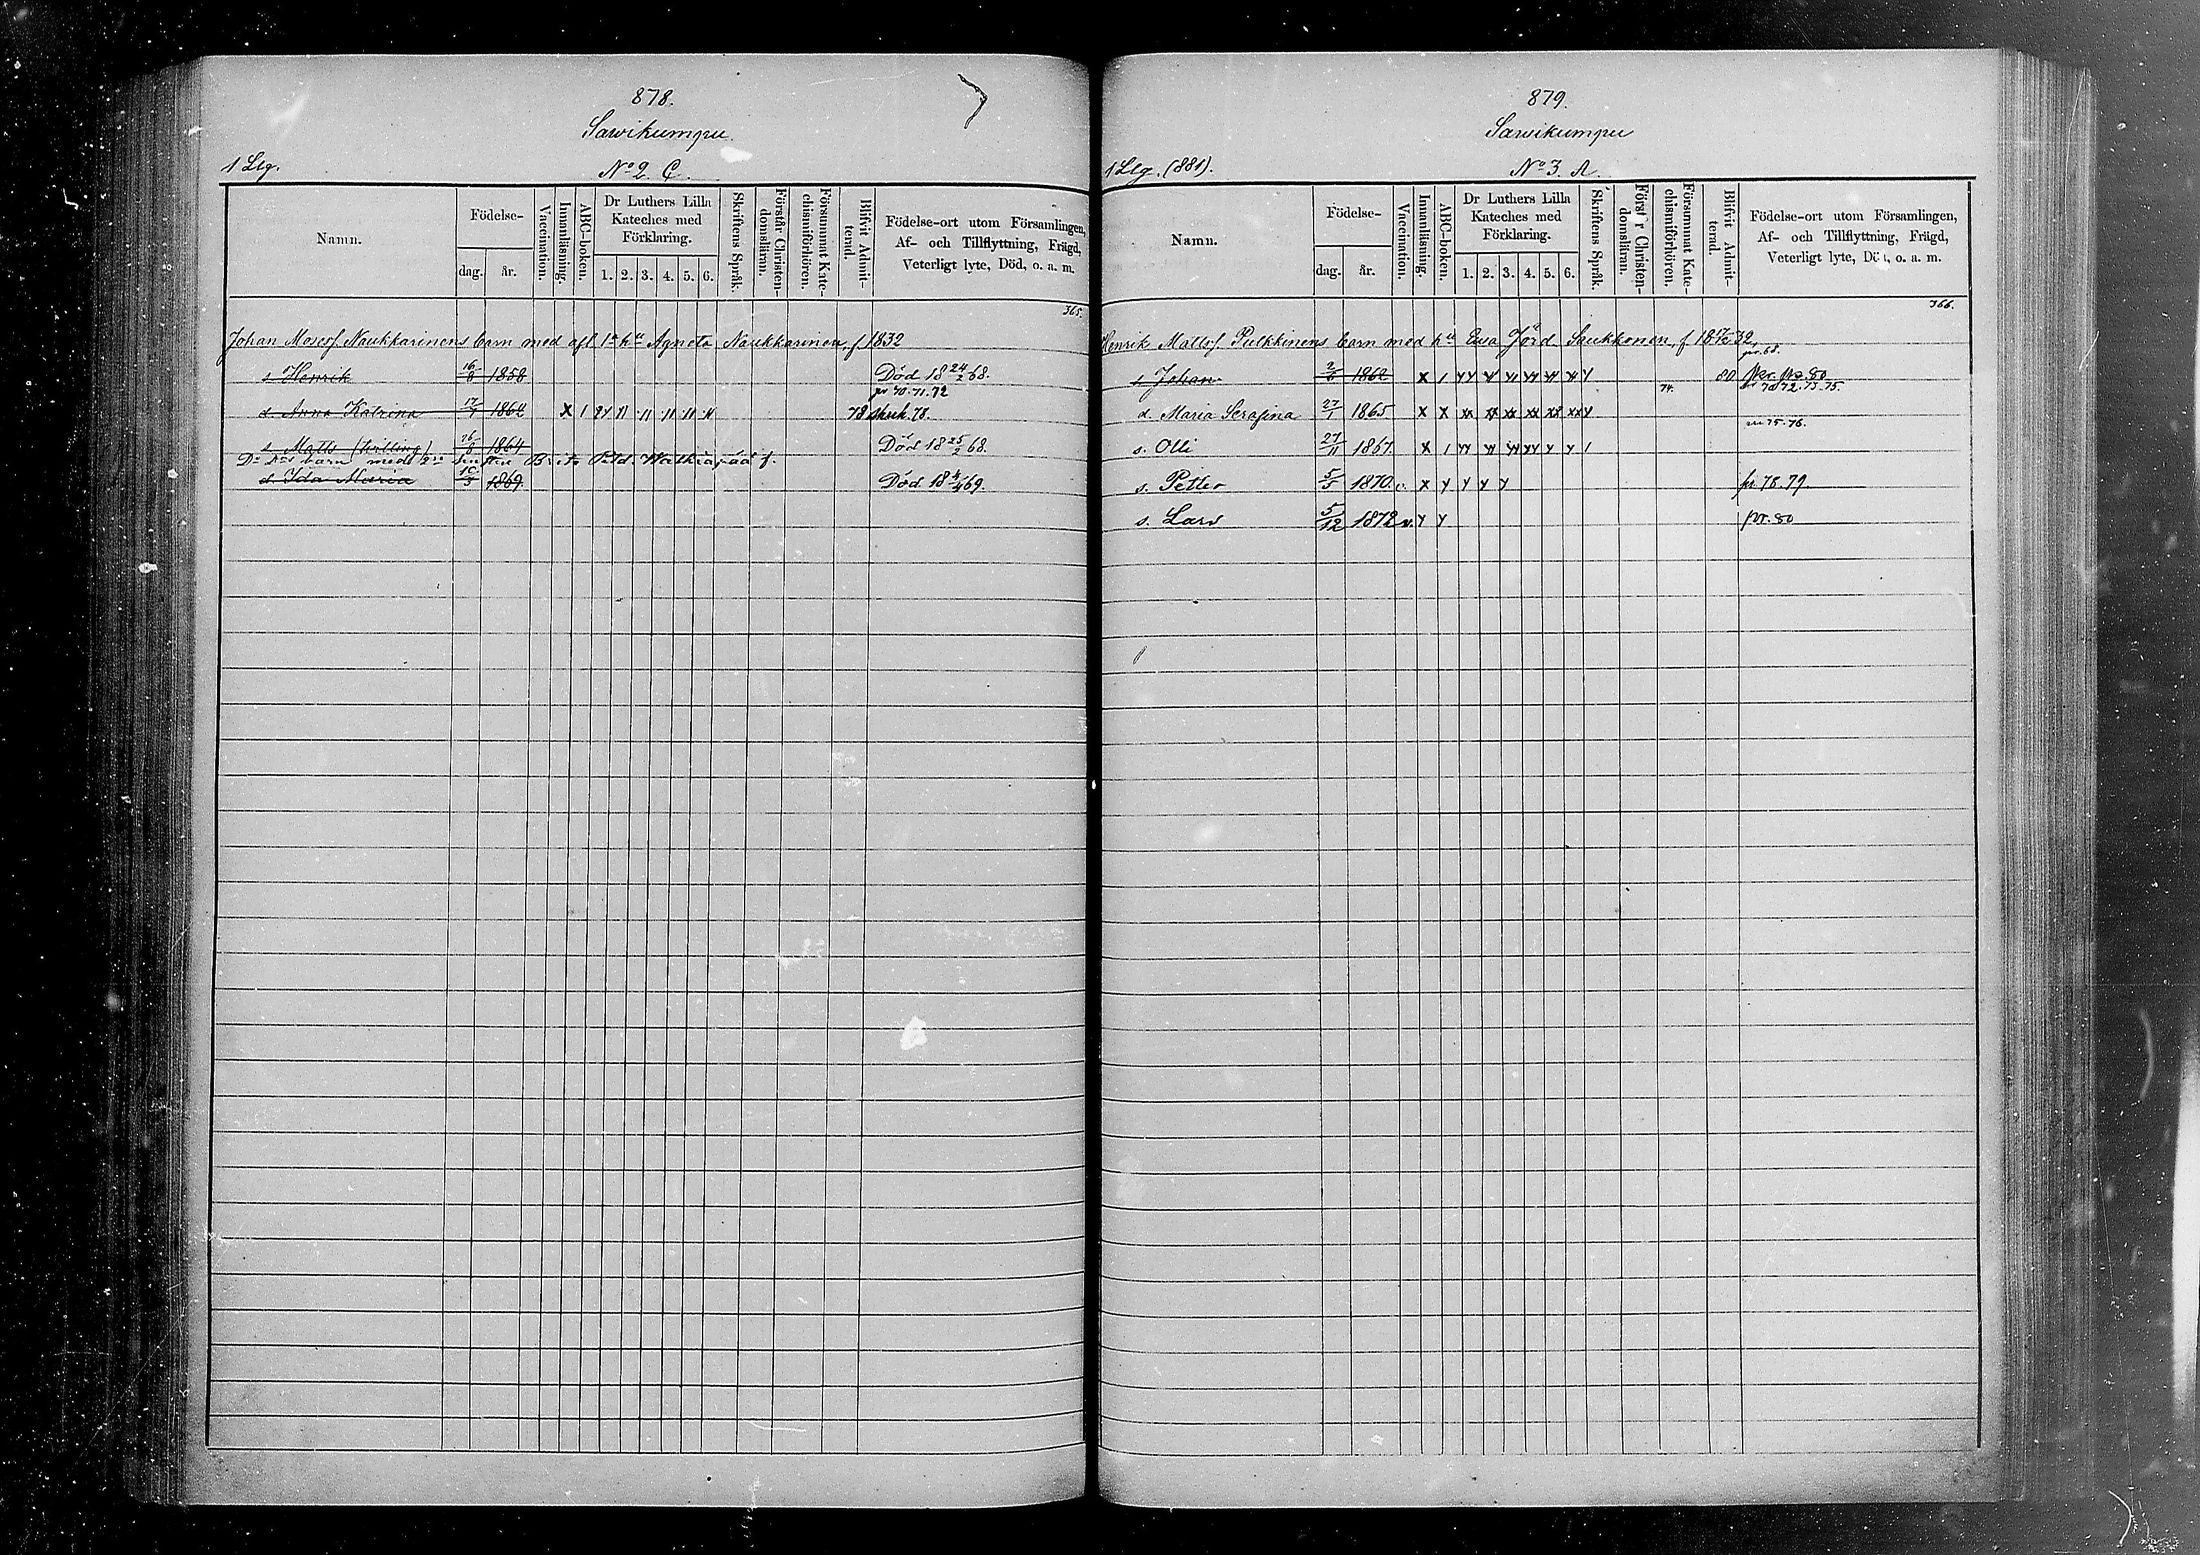 878.
Sawikumpu.
1 Llg.
No 2. C.
Namn.
Födelse-
dag.
år.
Vaccination.
Innanläsning.
ABC-boken.
Dr Luthers Lilla
Kateches med
Förklaring.
1. 2. 3. 4. 5. 6.
Skriftens Språk.
Förstår Christen-
domsläran.
Försummat Kate-
chismiförhören.
Blifvit Admit-
terad.
Födelse-ort utom Församlingen,
Af- och Tillflyttning, Frägd,
Veterligt lyte, Död, o. a. m.
365.
Johan Mosesf. Naukkarinens barn med afl. 1a hu Agneta Naukkarinen, f. 1832
s. Henrik 16/8 1858 Död 18 24/2 68.
70. 71. 72
d. Anna Katrina 17/1 1862 X 1 78 78.
s. Matts (tvilling) 16/8 1864 Död 18 25/2 68.
barn med 2a Brita Walkiapää f.
d. Ida Maria 10/3 1869. Död 18 4/4 69.
879.
Sawikumpu
1 Llg. (881).
No 3. A.
Namn.
Födelse-
dag.
år.
Vaccination.
Innanläsning.
ABC-boken.
Dr Luthers Lilla
Kateches med
Förklaring.
1. 2. 3. 4. 5. 6.
Skriftens Språk.
Först r Christen-
domsläran.
Försummat Kate-
chismiförhören.
Blifvit Admit-
terad.
Födelse-ort utom Församlingen,
Af- och Tillflyttning, Frägd,
Veterligt lyte, Dö , o. a. m.
366.
Henrik Mattsf. Pulkkinens barn med hu Eva Jörd. Saukkonen, f.
pr. 68.
s. Johan 2/6 1862 X 1 80
74. 72. 73. 75.
d. Maria Serafina 27/1 1865 X X xx xx xx xx xx xx y
75. 76.
s. Olli 27/11 1867. X 1
s. Petter 5/5 1870. v. X y y y y pr. 78. 79.
s. Lars 5/12 1872 v. y y pr. 80